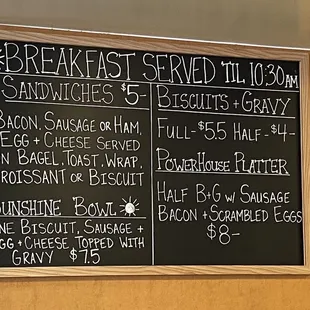 BREAKFAST SERVED TIL 10:30AM
SANDWICHES $5-
BACON, SAUSAGE OR HAM,
EGG + CHEESE SERVED
ON BAGEL, TOAST, WRAP,
CROISSANT OR BISCUIT
SUNSHINE BOWL
ONE BISCUIT, SAUSAGE +
EGG + CHEESE TOPPED WITH
GRAVY $7.5
BISCUITS + GRAVY
FULL- $5.5 HALF- $4-
POWERHOUSE PLATTER
HALF B+G W/ SAUSAGE
BACON + SCRAMBLED EGGS
$8-